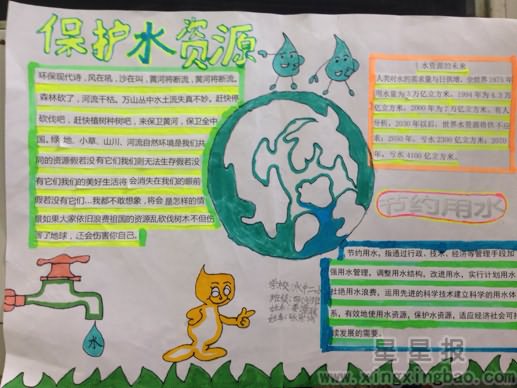 保护水资源
环保现代诗，风在吼，沙在叫，黄河将断流，黄河将断流。
森林砍了，河流干枯。万山丛中水土流失真不妙。赶快停
砍伐吧，赶快植树种树吧，来保卫黄河，保卫全中
国。绿地、小草、山川、河流自然环境是我们共
同的资源假若没有它们我们则无法生存假若没
有它们我们的美好生活将会消失在我们的眼前
假若没有它们…我都不敢想象，将会是怎样的情
景如果大家依旧浪费祖国的资源乱砍伐树木不但伤
害了地球，还会伤害你自己。
水资源的未来
人类对水的需求量与日俱增，全世界1975年
用水量为3万亿立方米，1994年为4.3万
亿立方米，2000年为7万亿立方米，有人
分析，2030年以后，世界水资源将供不应
求；2050年，亏水2300亿立方米；
年，亏水4100亿立方米。
节约用水
节约用水，指通过行政、技术、经济等管理手段加
强用水管理，调整用水结构，改进用水，实行计划用水
杜绝用水浪费，运用先进的科学技术建立科学的用水体
系，有效地使用水资源，保护水资源，适应经济社会可持
续发展的需要。
学校：
班级：
水
星星报
www.xinxingbao.com